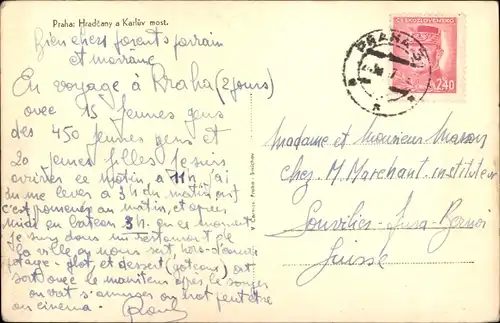 Praha: Hradčany a Karlův most.
Bien chers parents parrain
et marraine
En voyage à Praha (2 jours)
avec 15 jeunes gens
des 450 jeunes gens et
20 jeunes filles Je suis
arrivés ce matin à 11 h j'ai
du me lever à 3 h du matin
c'est promener au matin, et après
midi en bateau 3 h. en ce moment
je suis dans un restaurant de
la ville et nous soit, hors-d'œuvre
potage - plat, et dessert (gateaux)
sort avec le après le souper
on vat s'amuser on vat peut être
au cinema.
ČESKOSLOVENSKO
2.40
PRAHA
Madame et Monsieur Masson
chez M. Marchant instituteur
Sonvilier-Jura-Bernois
Suisse